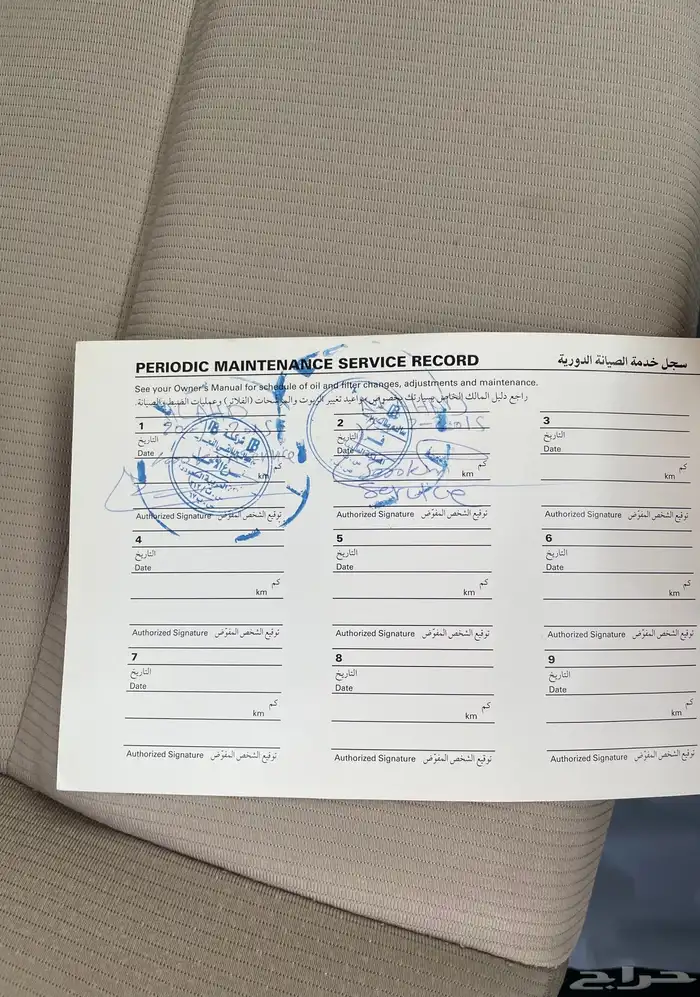 PERIODIC MAINTENANCE SERVICE RECORD
سجل خدمة الصيانة الدورية
See your Owner's Manual for schedule of oil and filter changes, adjustments and maintenance.
راجع دليل المالك الخاص بسيارتك بخصوص مواعيد تغيير الزيوت والمرشحات (الفلاتر) وعمليات الضبط والصيانة.
1
التاريخ
Date
كم
km
Authorized Signature توقيع الشخص المفوّض
2
التاريخ
Date
كم
5000km km
service
Authorized Signature توقيع الشخص المفوّض
3
التاريخ
Date
كم
km
Authorized Signature توقيع الشخص المفوّض
4
التاريخ
Date
كم
km
Authorized Signature توقيع الشخص المفوّض
5
التاريخ
Date
كم
km
Authorized Signature توقيع الشخص المفوّض
6
التاريخ
Date
كم
km
Authorized Signature توقيع الشخص المفوّض
7
التاريخ
Date
كم
km
Authorized Signature توقيع الشخص المفوّض
8
التاريخ
Date
كم
km
Authorized Signature توقيع الشخص المفوّض
9
التاريخ
Date
كم
km
Authorized Signature توقيع الشخص المفوّض
حراج